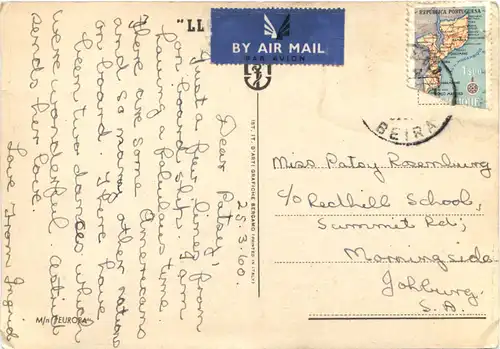 "LL
BY AIR MAIL
PAR AVION
REPUBLICA PORTUGUESA
BEIRA
25.3.60.
Dear Patsy,
Just a few lines from
on board ship. I am
having a fabulous time.
There are some Americans
and so many other nations
on board. There have
been two dances which
were wonderful. Astrid
sends her love.
Love from Ingrid
M/n "EUROPA"
IST. IT. D'ARTI GRAFICHE BERGAMO (PRINTED IN ITALY)
Miss Patsy Rosenburg
c/o Redhill School,
Summit Rd;
Morningside
Johburg.
S.A.